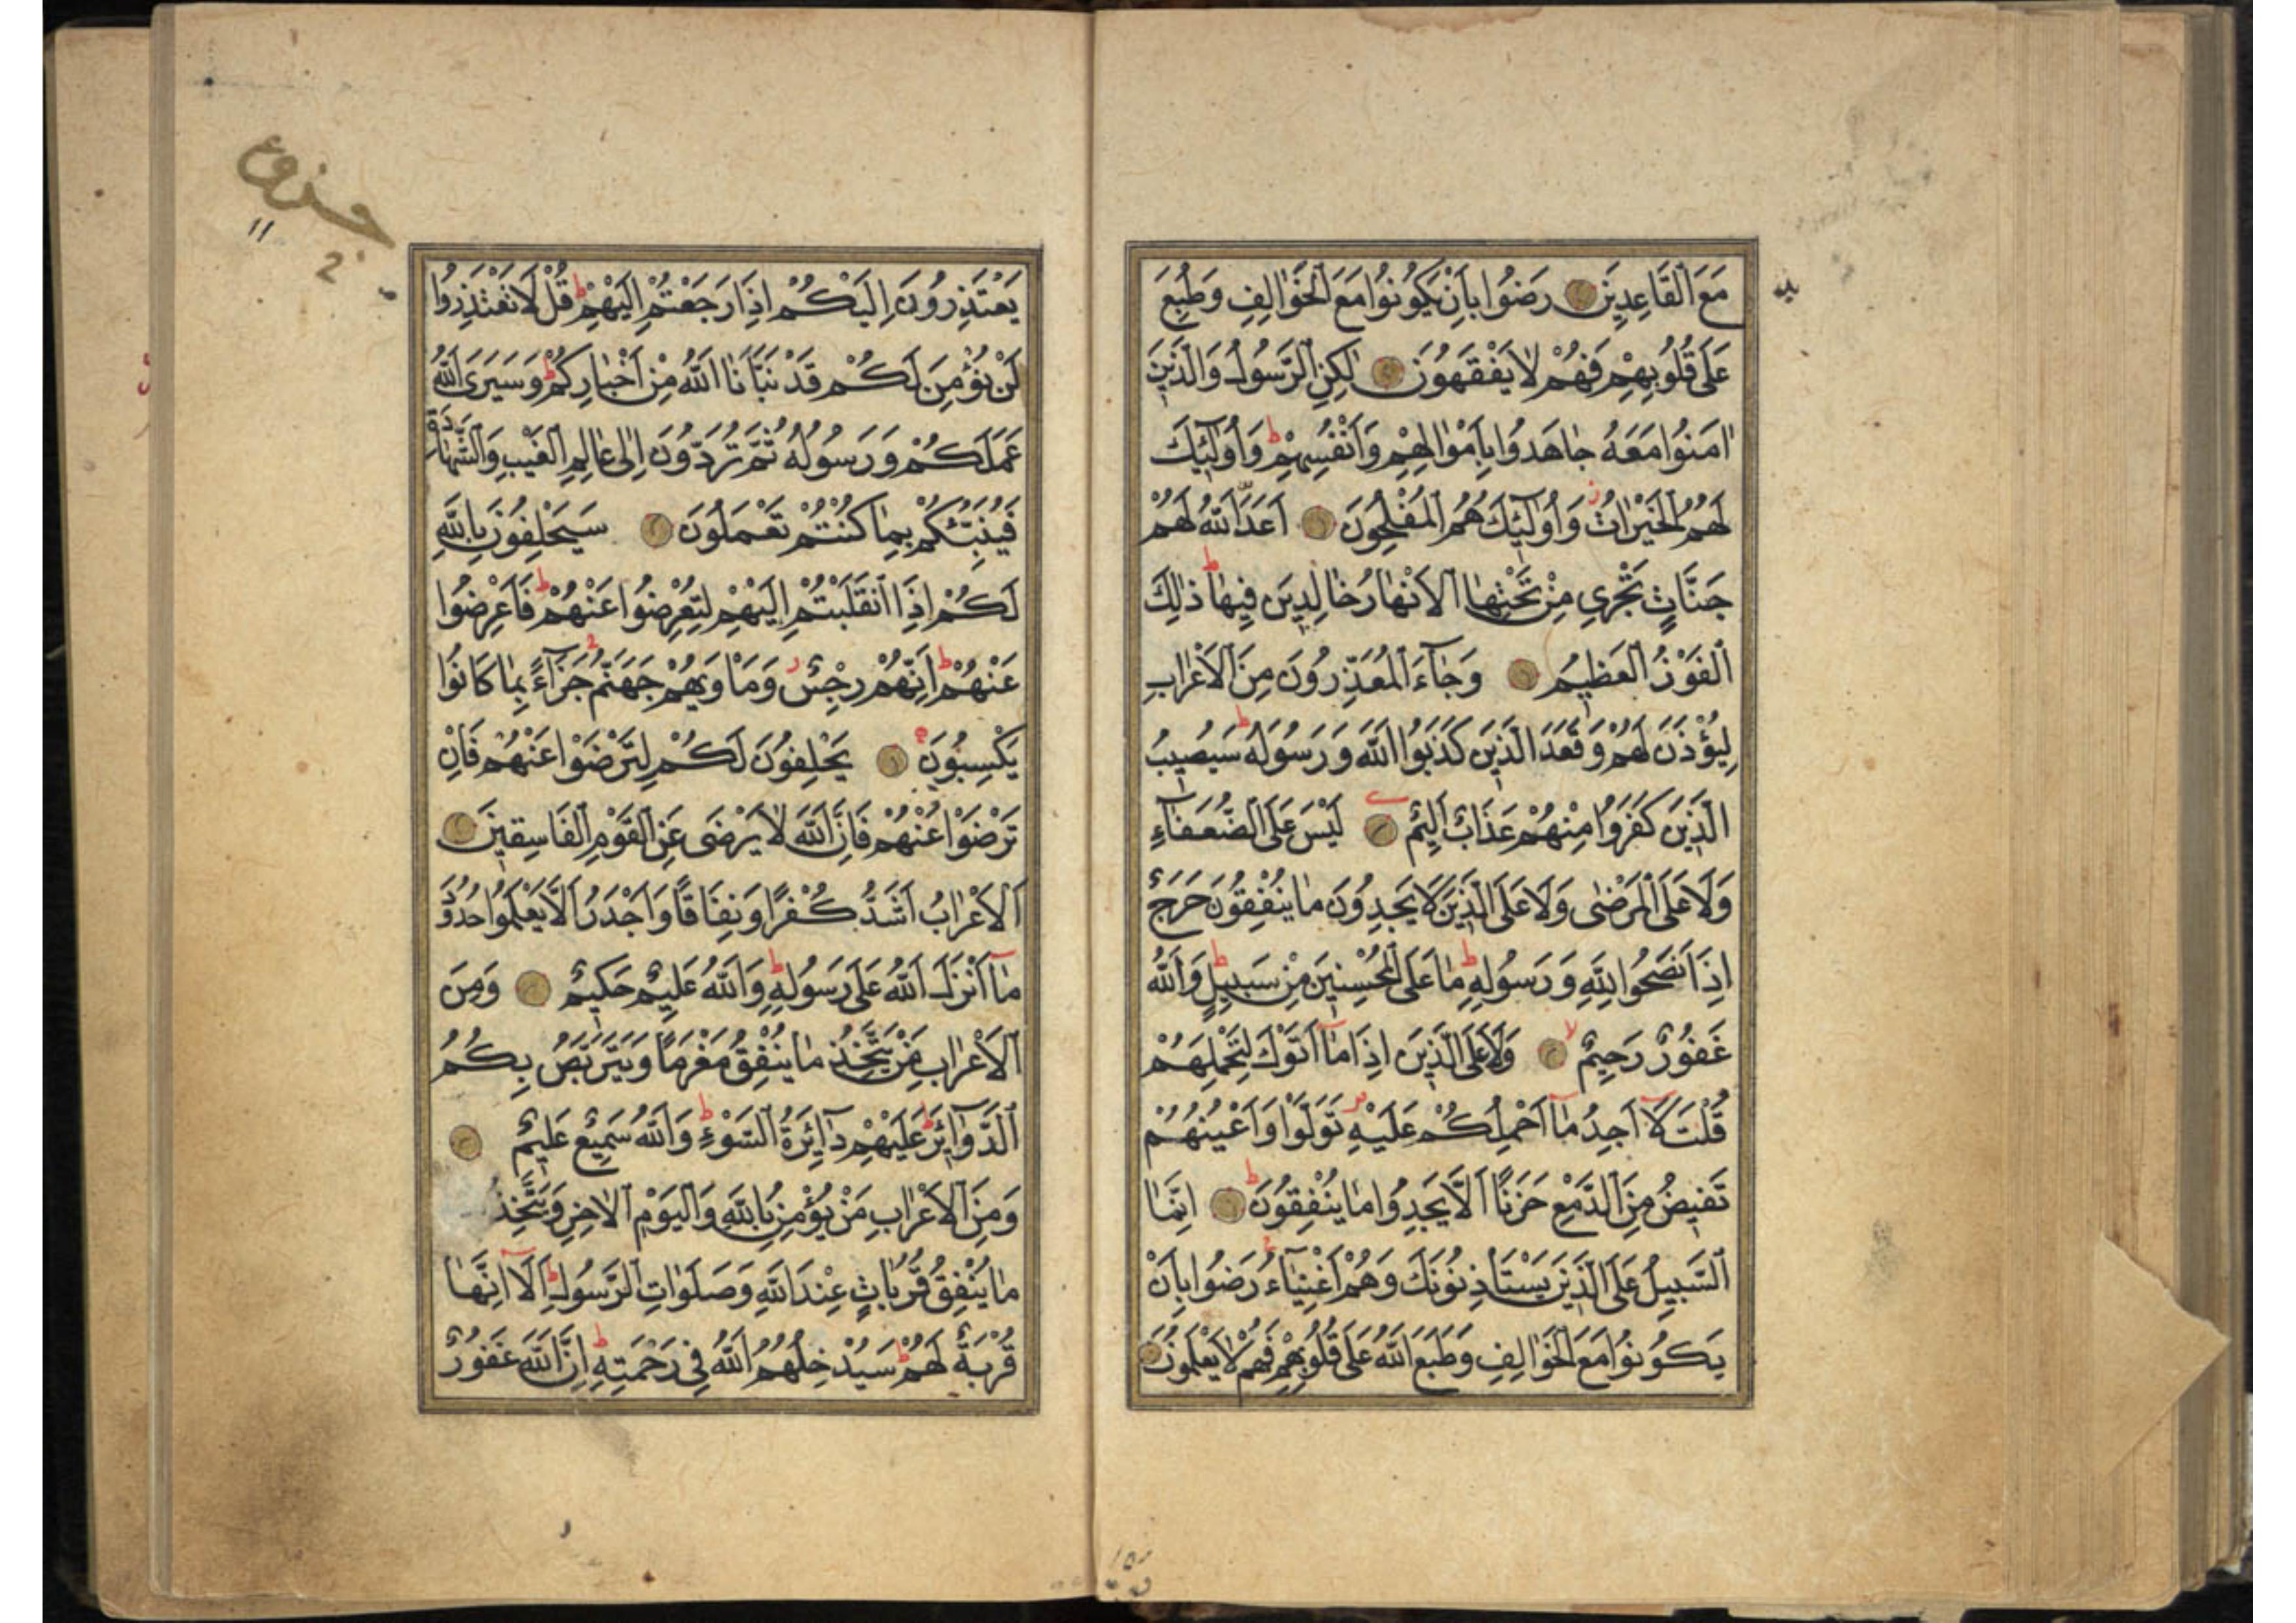 مَعَ الْقَاعِدِينَ رَضُوا بِأَنْ يَكُونُوا مَعَ الْخَوَالِفِ وَطُبِعَ
عَلَى قُلُوبِهِمْ فَهُمْ لَا يَفْقَهُونَ لَكِنِ الرَّسُولُ وَالَّذِينَ
اٰمَنُوا مَعَهُ جَاهَدُوا بِأَمْوَالِهِمْ وَأَنْفُسِهِمْ ط وَأُولَٰئِكَ
لَهُمُ الْخَيْرَاتُ ز وَأُولَٰئِكَ هُمُ الْمُفْلِحُونَ أَعَدَّ اللّٰهُ لَهُمْ
جَنَّاتٍ تَجْرِي مِنْ تَحْتِهَا الْأَنْهَارُ خَالِدِينَ فِيهَا ط ذَٰلِكَ
الْفَوْزُ الْعَظِيمُ وَجَاءَ الْمُعَذِّرُونَ مِنَ الْأَعْرَابِ
لِيُؤْذَنَ لَهُمْ وَقَعَدَ الَّذِينَ كَذَبُوا اللّٰهَ وَرَسُولَهُ ط سَيُصِيبُ
الَّذِينَ كَفَرُوا مِنْهُمْ عَذَابٌ أَلِيمٌ لَيْسَ عَلَى الضُّعَفَاءِ
وَلَا عَلَى الْمَرْضَى وَلَا عَلَى الَّذِينَ لَا يَجِدُونَ مَا يُنْفِقُونَ حَرَجٌ
إِذَا نَصَحُوا لِلّٰهِ وَرَسُولِهِ ط مَا عَلَى الْمُحْسِنِينَ مِنْ سَبِيلٍ ط وَاللّٰهُ
غَفُورٌ رَحِيمٌ لا وَلَا عَلَى الَّذِينَ إِذَا مَا أَتَوْكَ لِتَحْمِلَهُمْ
قُلْتَ لَا أَجِدُ مَا أَحْمِلُكُمْ عَلَيْهِ تَوَلَّوْا وَأَعْيُنُهُمْ
تَفِيضُ مِنَ الدَّمْعِ حَزَنًا أَلَّا يَجِدُوا مَا يُنْفِقُونَ ط إِنَّمَا
السَّبِيلُ عَلَى الَّذِينَ يَسْتَأْذِنُونَكَ وَهُمْ أَغْنِيَاءُ رَضُوا بِأَنْ
يَكُونُوا مَعَ الْخَوَالِفِ وَطَبَعَ اللّٰهُ عَلَى قُلُوبِهِمْ فَهُمْ لَا يَعْلَمُونَ
يَعْتَذِرُونَ إِلَيْكُمْ إِذَا رَجَعْتُمْ إِلَيْهِمْ ط قُلْ لَا تَعْتَذِرُوا
لَنْ نُؤْمِنَ لَكُمْ قَدْ نَبَّأَنَا اللّٰهُ مِنْ أَخْبَارِكُمْ ط وَسَيَرَى اللّٰهُ
عَمَلَكُمْ وَرَسُولُهُ ثُمَّ تُرَدُّونَ إِلَى عَالِمِ الْغَيْبِ وَالشَّهَادَةِ
فَيُنَبِّئُكُمْ بِمَا كُنْتُمْ تَعْمَلُونَ سَيَحْلِفُونَ بِاللّٰهِ
لَكُمْ إِذَا انْقَلَبْتُمْ إِلَيْهِمْ لِتُعْرِضُوا عَنْهُمْ ط فَأَعْرِضُوا
عَنْهُمْ ط إِنَّهُمْ رِجْسٌ ز وَمَأْوَيهُمْ جَهَنَّمُ جَزَاءً بِمَا كَانُوا
يَكْسِبُونَ يَحْلِفُونَ لَكُمْ لِتَرْضَوْا عَنْهُمْ فَإِنْ
تَرْضَوْا عَنْهُمْ فَإِنَّ اللّٰهَ لَا يَرْضَى عَنِ الْقَوْمِ الْفَاسِقِينَ
الْأَعْرَابُ أَشَدُّ كُفْرًا وَنِفَاقًا وَأَجْدَرُ أَلَّا يَعْلَمُوا حُدُودَ
مَا أَنْزَلَ اللّٰهُ عَلَى رَسُولِهِ ط وَاللّٰهُ عَلِيمٌ حَكِيمٌ وَمِنَ
الْأَعْرَابِ مَنْ يَتَّخِذُ مَا يُنْفِقُ مَغْرَمًا وَيَتَرَبَّصُ بِكُمُ
الدَّوَائِرَ ط عَلَيْهِمْ دَائِرَةُ السَّوْءِ ط وَاللّٰهُ سَمِيعٌ عَلِيمٌ
وَمِنَ الْأَعْرَابِ مَنْ يُؤْمِنُ بِاللّٰهِ وَالْيَوْمِ الْاٰخِرِ وَيَتَّخِذُ
مَا يُنْفِقُ قُرُبَاتٍ عِنْدَ اللّٰهِ وَصَلَوَاتِ الرَّسُولِ ط أَلَا إِنَّهَا
قُرْبَةٌ لَهُمْ ط سَيُدْخِلُهُمُ اللّٰهُ فِي رَحْمَتِهِ ط إِنَّ اللّٰهَ غَفُورٌ